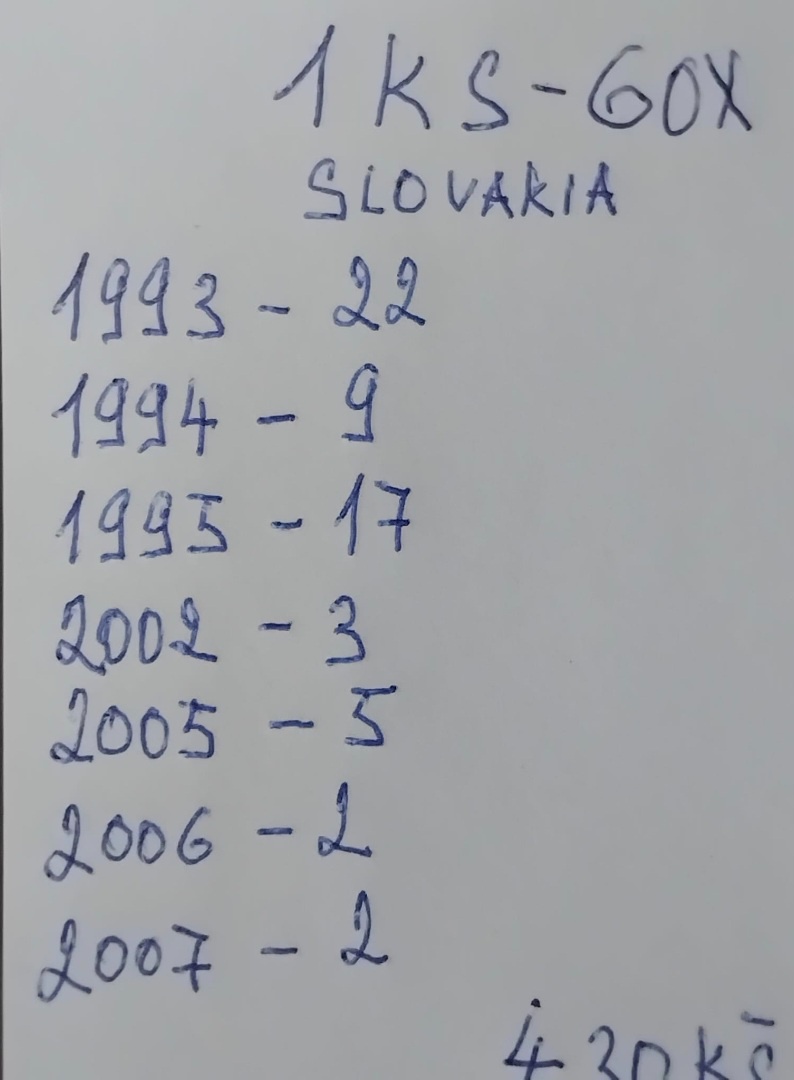 1 KS - 60X
SLOVAKIA
1993 - 22
1994 - 9
1995 - 17
2002 - 3
2005 - 5
2006 - 2
2007 - 2